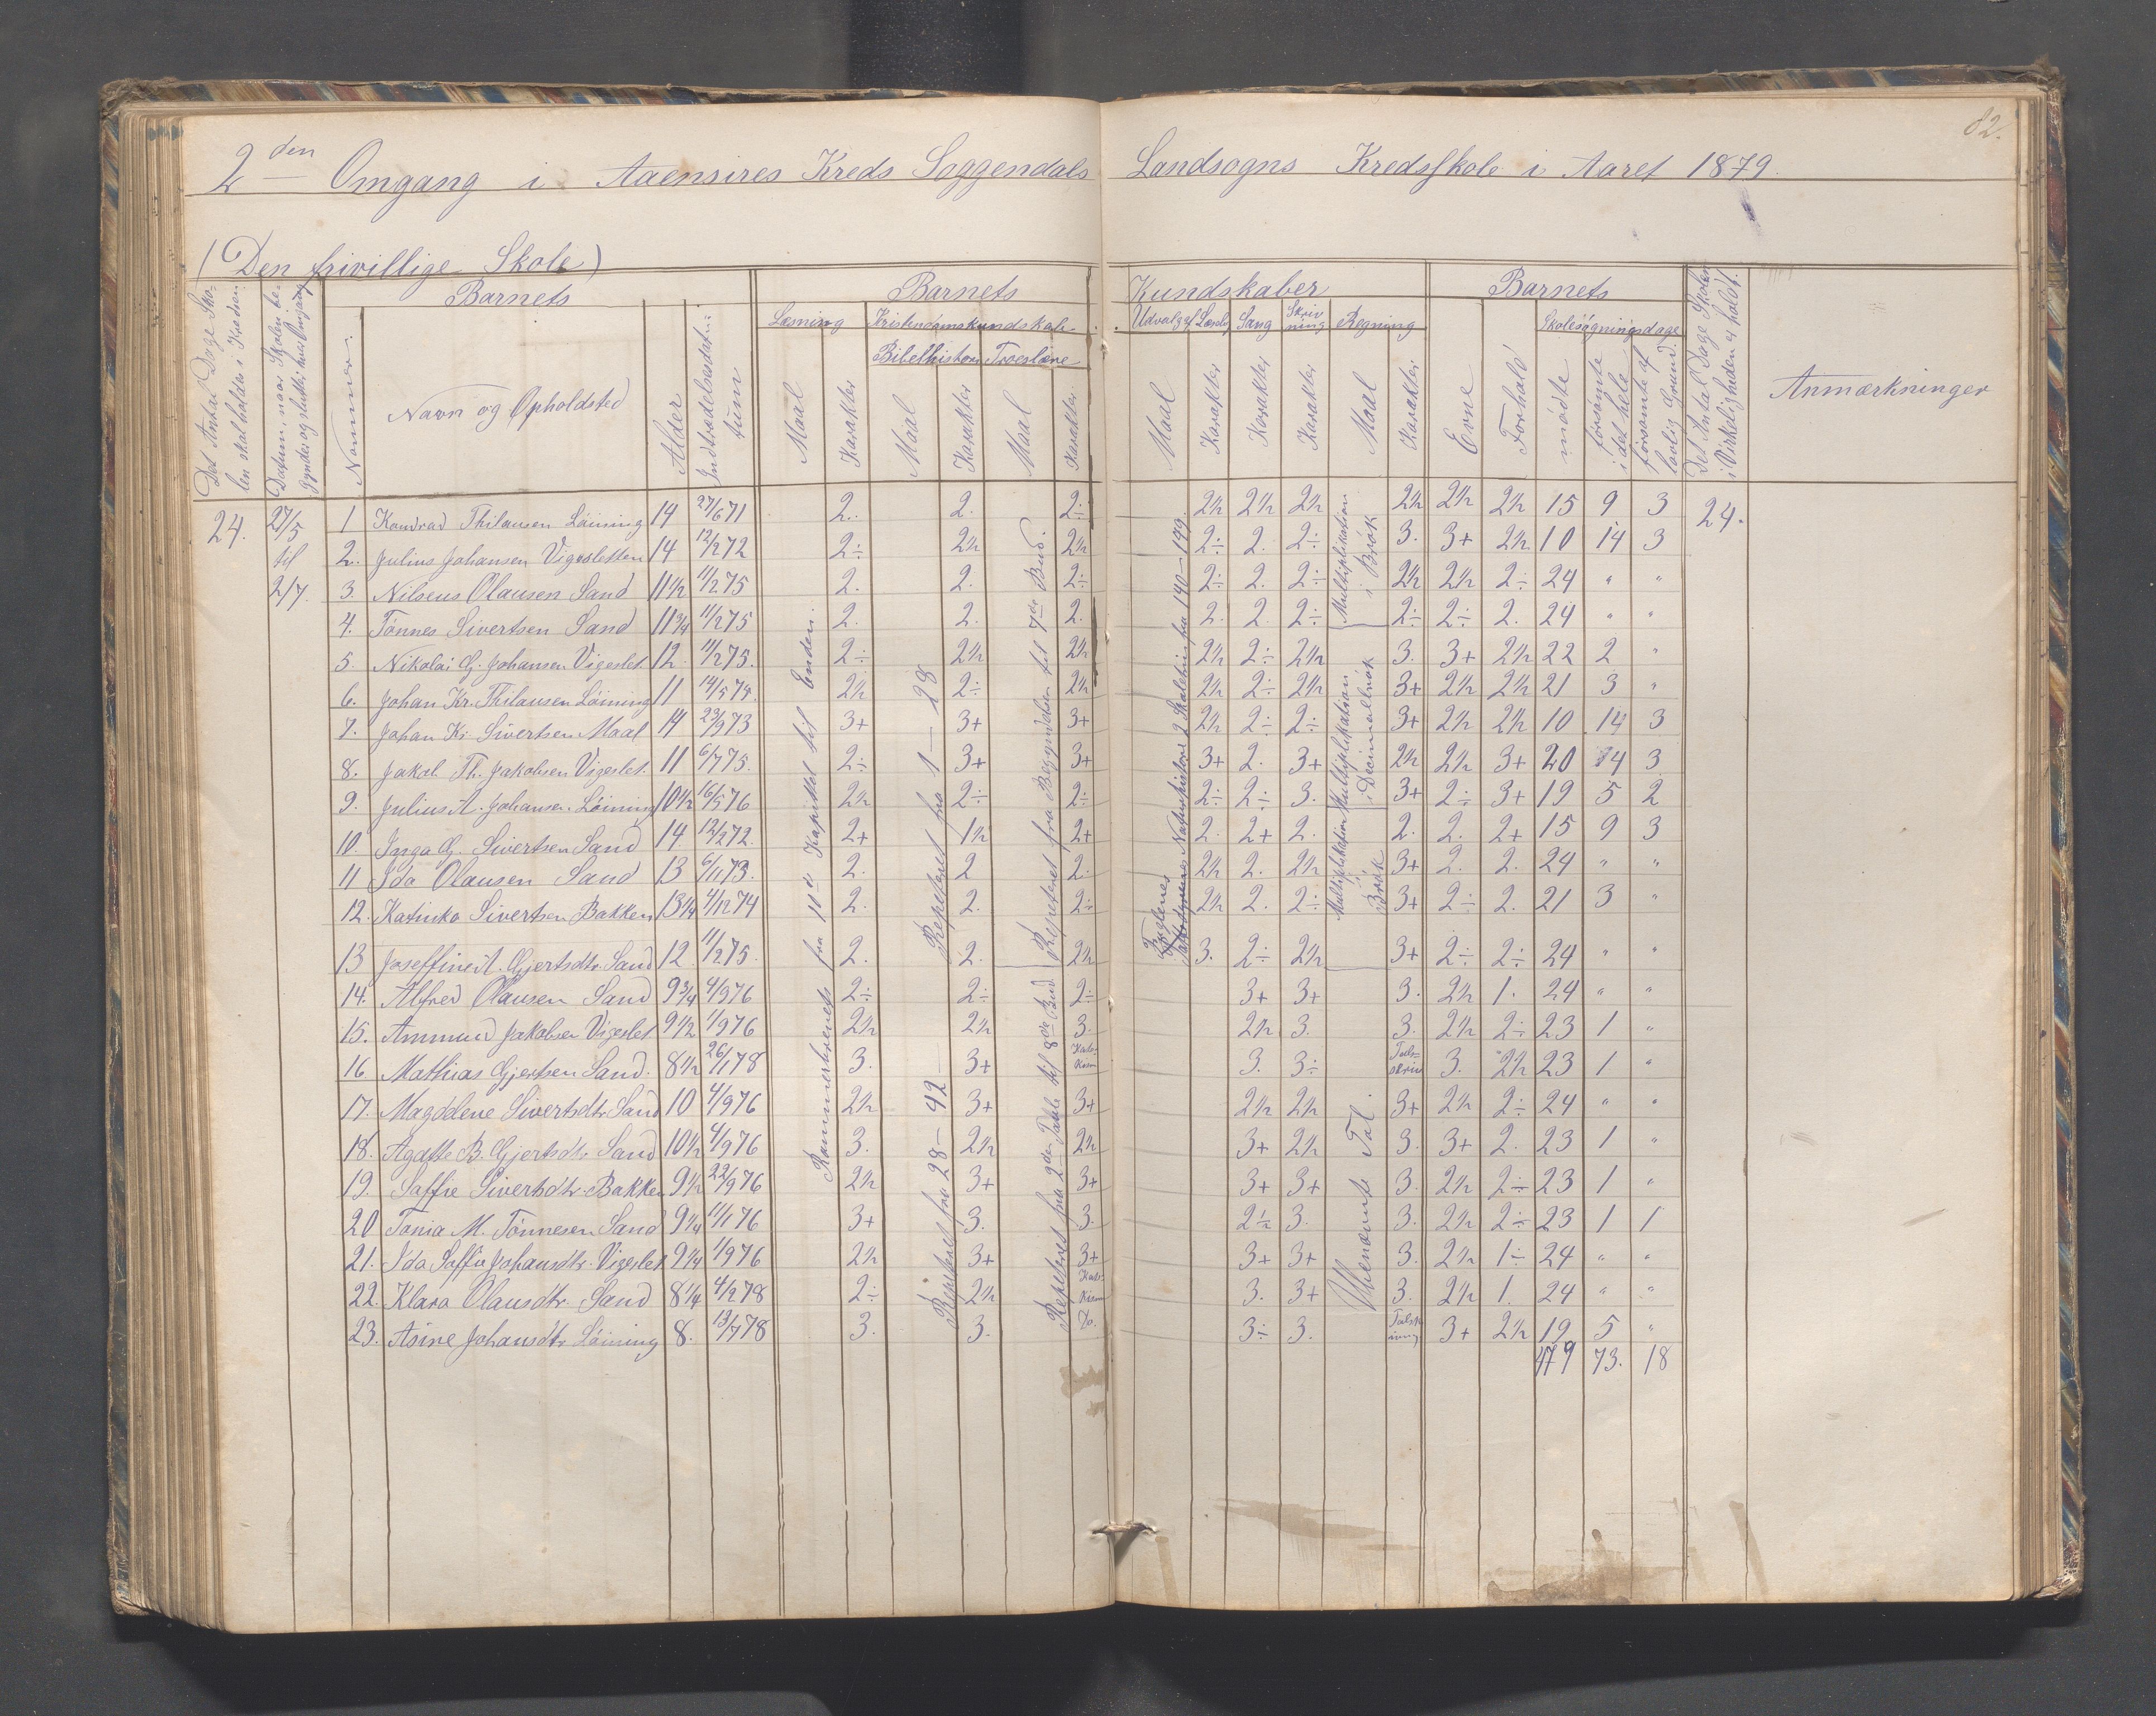 82.
2den Omgang i Aaensires Kreds Soggendals Landsogns Kredsskole i Aaret 1879.
(Den frivillige Skole)
Det Antal Dage Skolen skal holdes i Kredsen
Datum, naar Skolen begynder og slutter hver Omgang
Nummer.
Barnets
Navn og Opholdsted
Alder
Indtrædelsesdatum
Barnets Kundskaber
Læsning
Maal
Karakter
Kristendomskundskab
Bibelhistorie
Troeslære
Maal
Karakter
Maal
Karakter
Udvalg af Læseb.
Sang
Skrivning
Regning
Maal
Karakter
Karakter
Karakter
Maal
Karakter
Barnets
Evne
Forhold
Skolesögningsdage
mödte
forsömte i det hele
forsömte af lovlig Grund.
Det Antal Dage Skolen i Virkeligheden er holdt.
Anmærkninger
24. 27/5 til 2/7.
24.
1 Kondrad Thilausen Löining 14 27/6 71 2. 2. 2÷ 2½ 2½ 2½ 2½ 2½ 2½ 15 9 3
2. Julius Johansen Vigesletten 14 12/2 72 2÷ 2½ 2½ 2÷ 2. 2÷ 3. 3+ 2½ 10 14 3
3. Nilseus Olausen Sand 11½ 11/2 75 2. 2. 2÷ 2÷ 2. 2÷ 2½ 2½ 2÷ 24 " "
4. Tönnes Sivertsen Sand 11¾ 11/2 75 2. 2. 2. 2. 2. 2÷ 2÷ 2÷ 2. 24 " "
5. Nikolai G. Johansen Vigeslet. 12. 11/2 75. 2÷ 2½ 2½ 2½ 2÷ 2½ 3. 3+ 2½ 22 2 "
6. Johan Kr. Thilausen Löining 11 14/5 74. 2½ 2÷ 2½ 2½ 2÷ 2½ 3+ 2½ 2½ 21 3 "
7. Johan Kr. Sivertsen Maal 14 23/9 73 3+ 3+ 3+ 2½ 2÷ 2÷ 3+ 2½ 2½ 10 14 3
8. Jakob Th. Jakobsen Vigeslet. 11 6/7 75. 2÷ 3+ 3+ 3+ 2. 3+ 2½ 2½ 3+ 20 4 3
9. Julius A. Johansen Löining 10½ 16/5 76 2½ 2÷ 2÷ 2÷ 2÷ 3. 3+ 2÷ 3+ 19 5 2
10. Inga G. Sivertsen Sand 14. 12/2 72. 2+ 1½ 2+ 2. 2+ 2. 2. 2. 2+ 15 9 3
11 Ida Olausen Sand 13 6/11 73. 2. 2 2. 2½ 2. 2½ 3+ 2. 2. 24 " "
12. Katinka Sivertsen Bakken 13¼ 4/12 74 2. 2. 2÷ 2½ 2. 2÷ 3+ 2÷ 2. 21 3 "
13 Joseffine A. Gjertsdtr. Sand 12 11/2 75. 2. 2. 2½ 3. 2÷ 2½ 3+ 2÷ 2÷ 24 " "
14. Alfred Olausen Sand 9¾ 4/9 76 2÷ 2÷ 2÷ 3+ 3+ 3. 2½ 1. 24 " "
15. Ammund Jakobsen Vigeslet 9½ 1/9 76 2½ 2½ 3. 2½ 3. 3. 2½ 2÷ 23 1 "
16. Mathias Gjertsen Sand. 8½ 26/1 78 3. 3+ 3. 3÷ Talskriv 3. 2½ 23 1 "
17. Magdelene Sivertsdtr. Sand 10 4/9 76 2½ 3+ 3+ 2½ 2½ 3+ 2½ 2÷ 24 " "
18. Agathe B. Gjertsdtr Sand 10½ 4/9 76 3. 2½ 2½ 3+ 2½ 3. 3+ 2. 23 1 "
19. Saffie Sivertsdtr. Bakken 9½ 22/9 76 2½ 3+ 3+ 3+ 3+ 3. 2½ 2÷ 23 1 "
20 Tonia M. Tönnesen Sand 9¼ 11/1 76 3+ 3. 3. 2÷ 3. 3. 2½ 2÷ 23 1 1
21. Ida Saffie Johansdtr. Vigeslet 9¼ 1/9 76 2½ 3+ 3+ 3+ 3+ 3. 2½ 1÷ 24 " "
22. Klara Olausdtr. Sand 8¼ 4/2 78 2÷ 2½ 3. 3+ 3. 2½ 1. 24 " "
23. Asine Johansdtr Löining 8. 13/7 78 3. 3. Do. 3÷ 3. 3+ 2½ 19 5 "
479 73. 18
fra 10de Kapitel til Enden.
Repeteret fra 1 — 28
Repeteret fra Begyndelsen til 7de Bud.
Fuglenes Naturhistorie 2 Skoletrin fra 140 — 199
Multiplikation i Brök
Multiplikation i Decimalbrök
Multiplikation i Brök
Repeteret fra 28 — 42
Repeteret fra 2den Tavle til 8de Bud
Ubenævnte Tal.